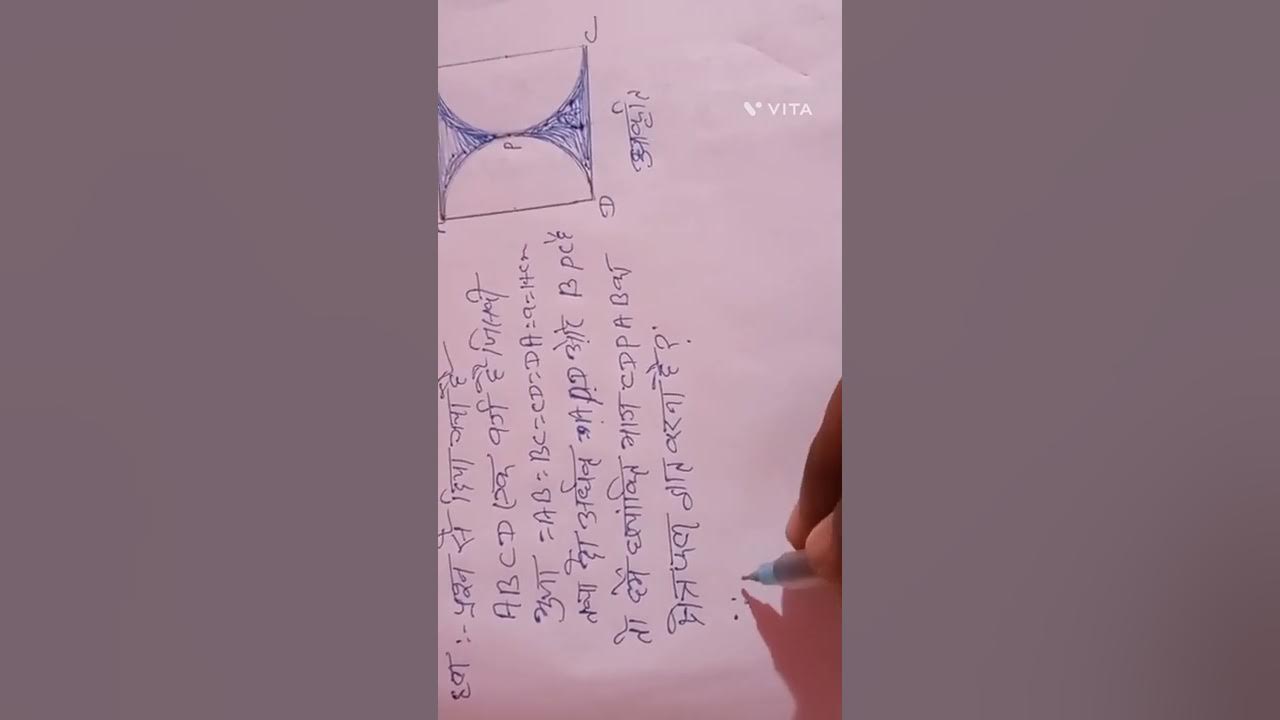 हल :- प्रश्न से दिया गया है
ABCD एक वर्ग है जिसकी
भुजा = AB = BC = CD = DA = a = 14cm
तथा दो अर्धवृत्त APD और BPC है
तो हमें छायांकित भाग CDPAB का
क्षेत्रफल ज्ञात करना है?
∴
C
P
D
आकृति
VITA